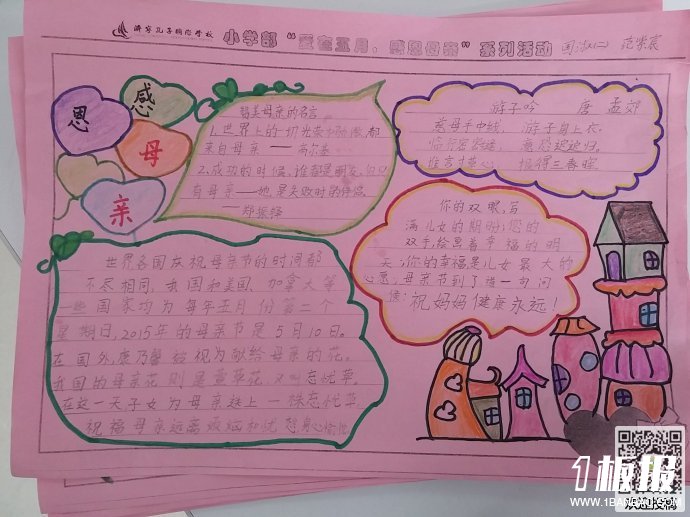 济宁孔子国际学校
小学部“爱在五月，感恩母亲”系列活动
范紫宸
感
恩
母
亲
赞美母亲的名言
1.世界上的一切光荣和骄傲，都
来自母亲——高尔基
2.成功的时候，谁都是朋友，但只
有母亲——她是失败时的伴侣。
郑振铎
游子吟 唐 孟郊
慈母手中线， 游子身上衣。
临行密密缝， 意恐迟迟归。
谁言寸草心， 报得三春晖。
你的双眼，写
满儿女的期盼；您的
双手，绘
着幸福的明
天；你的幸福是儿女最大的
心愿；母亲节到了道一句问
候：祝妈妈健康永远！
世界各国庆祝母亲节的时间都
不尽相同，我国和美国、加拿大等
一些国家均为每年五月份第二个
星期日，2015年的母亲节是5月10日。
在国外，康乃馨被视为献给母亲的花。
我国的母亲花则是萱草花，又叫忘忧草。
在这一天子女为母亲送上一株忘忧草，
祝福母亲远离烦恼和忧愁，身心愉悦。
1板报
WWW.1BANBAO.COM
欢迎投稿